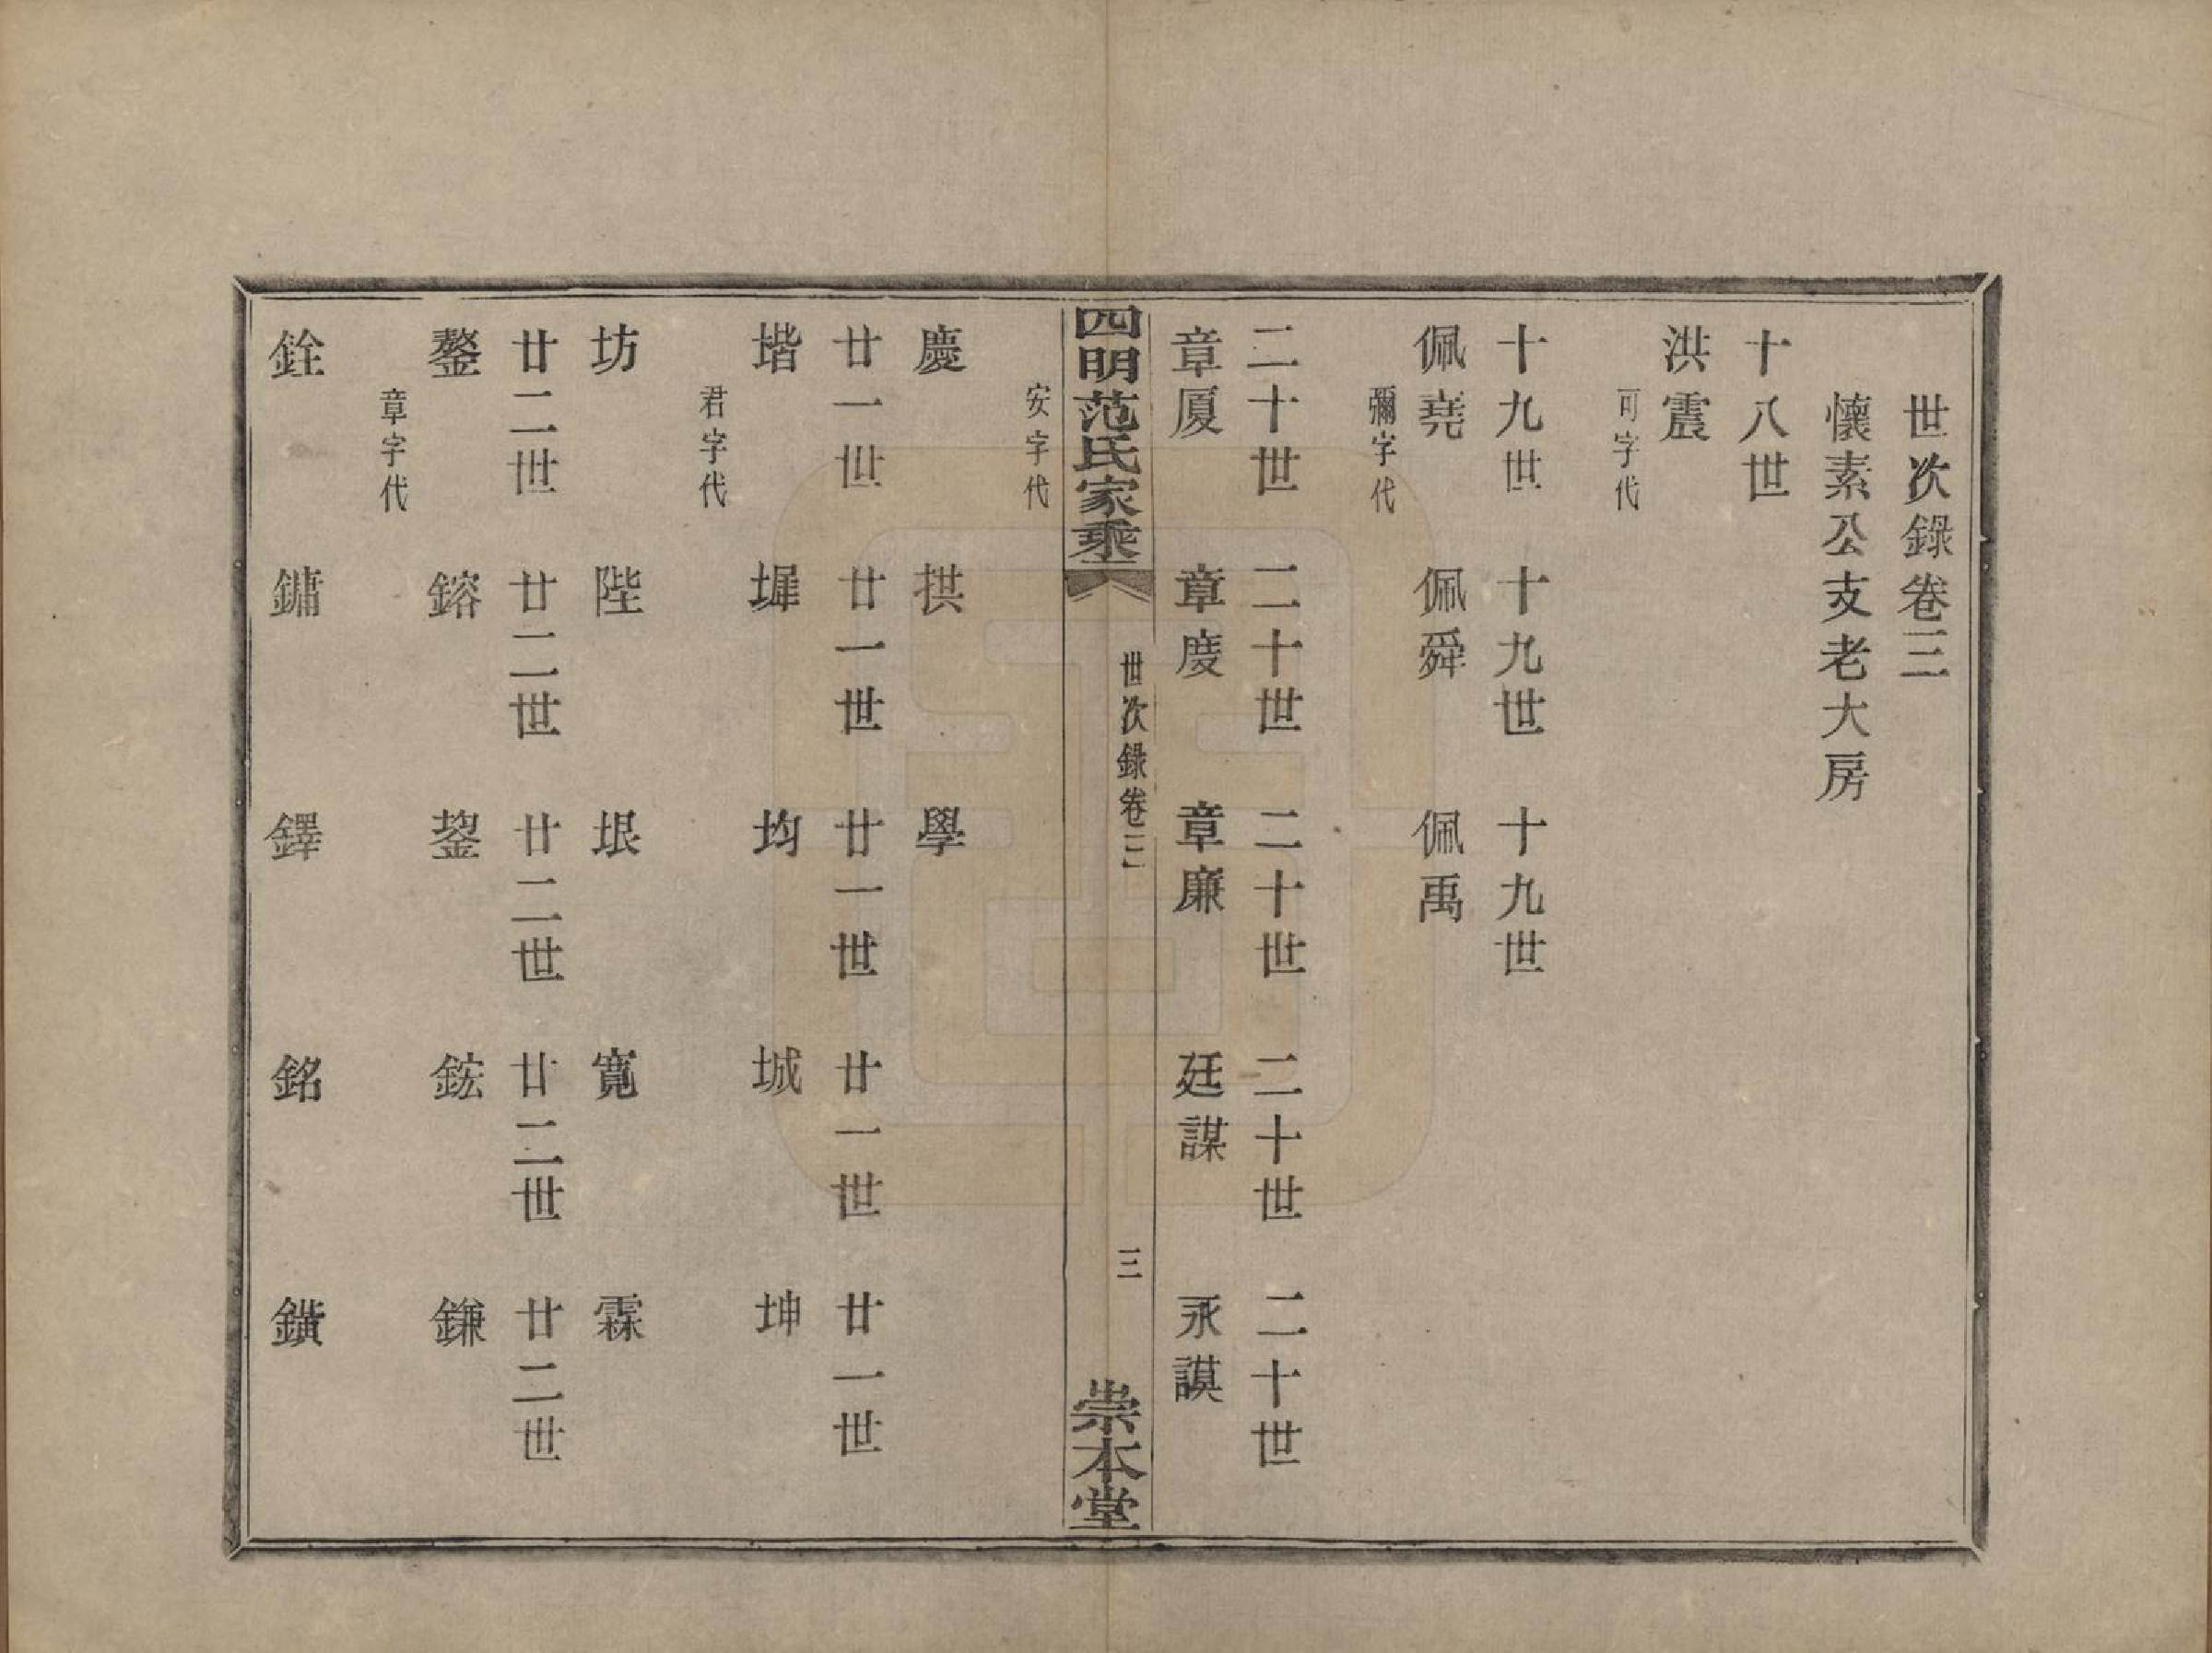 世次錄卷三
懷素公支老大房
十八世
洪震
可字代
十九世 十九世 十九世
佩堯 佩舜 佩禹
彌字代
二十世 二十世 二十世 二十世 二十世
章厦 章度 章廉 廷謀 永謨
四明范氏家乘 世次錄卷三 三 崇本堂
安字代
慶 拱 學
廿一世 廿一世 廿一世 廿一世 廿一世
堦 墀 均 城 坤
君字代
坊 陛 垠 寬 霖
廿二世 廿二世 廿二世 廿二世 廿二世
鏊 鎔 鋆 鋐 鎌
章字代
銓 鏞 鐸 銘 鐄